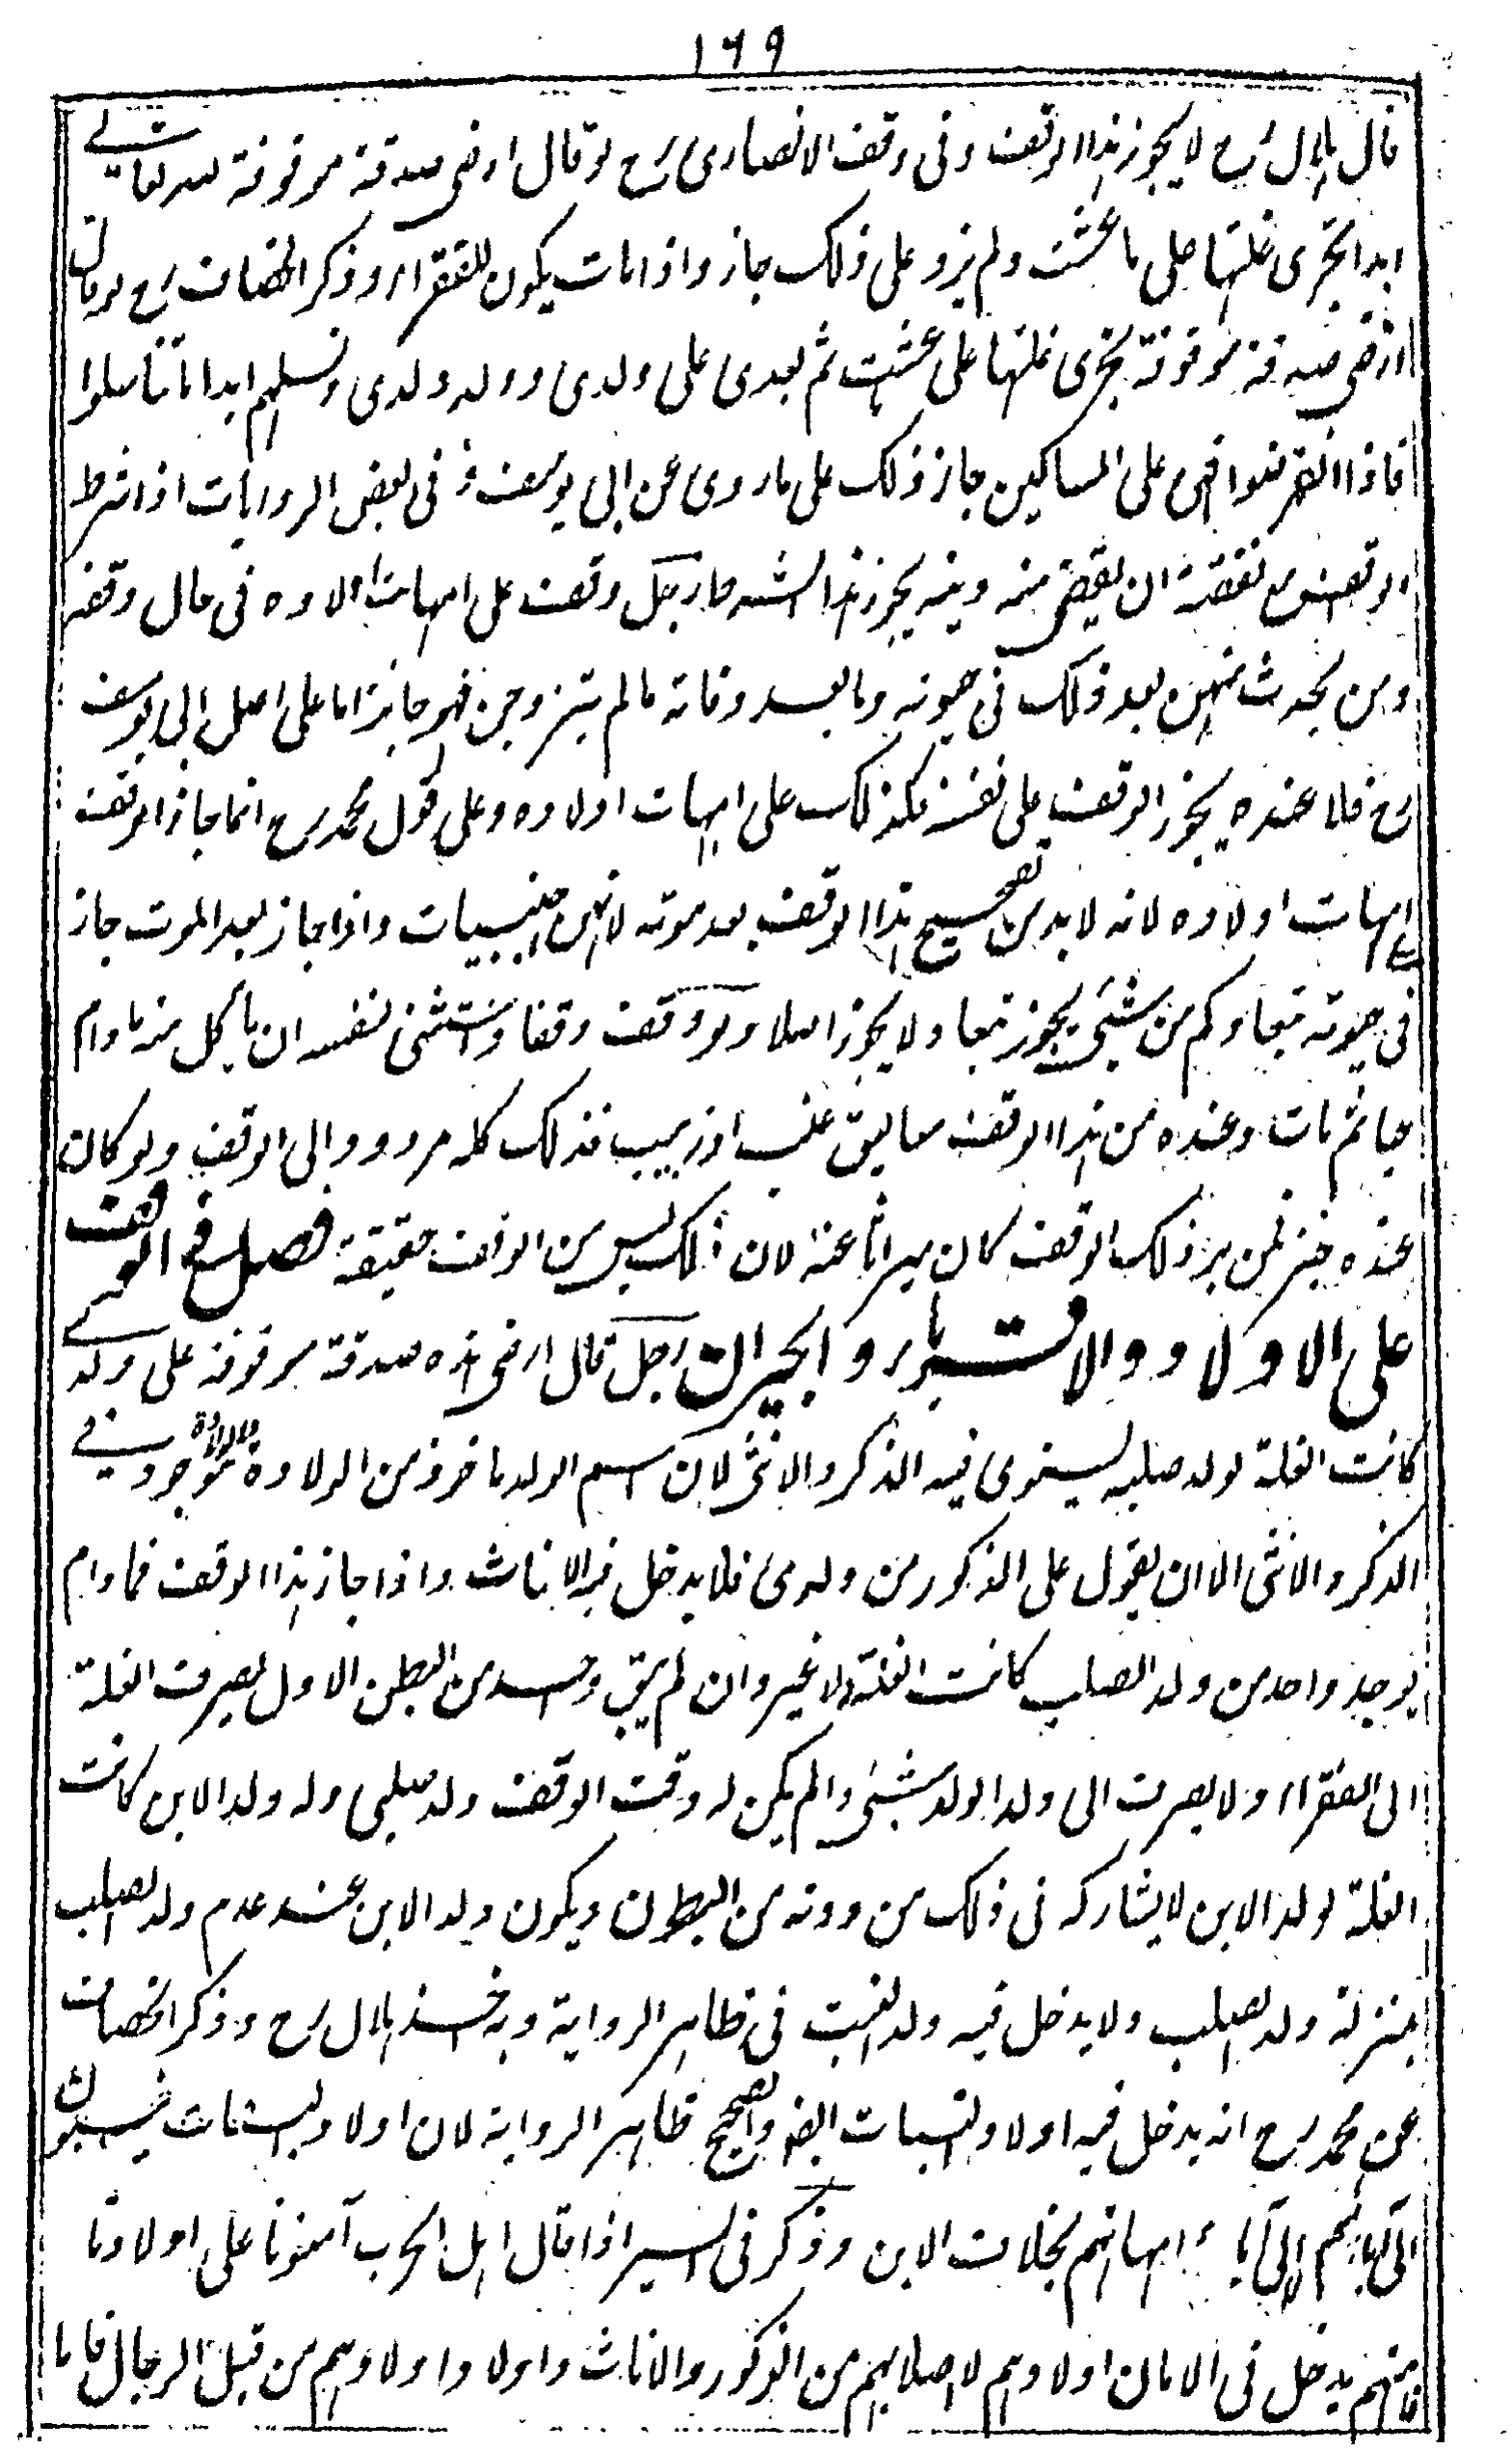 ١٦٩
قال هلال رح لا يجوز هذا الوقف وفى وقف الانصارى رح لو قال ارضى صدقة موقوفة لله تعالى
ابدا تجرى غلتها على ما عشت ولم يزد على ذلك جاز واذا مات يكون للفقراء وذكر الخصاف رح لو قال
ارضى صدقة موقوفة تجرى غلتها على عشت ثم بعدى على ولدى وولد ولدى ونسلهم ابدا ما تناسلوا
فاذا انقرضوا فهى على المساكين جاز ذلك على ما روى عن ابى يوسف رح فى بعض الروايات اذا شرط
الوقف نفقته ان يقضى منه دينه يجوز هذا الشرط رجل وقف على امهات اولاده فى حال وقفه
ومن يحدث منهن بعد ذلك فى حيوته وما بعد وفاته ما لم يتزوجن فهو جائز اما على اصل ابى يوسف
رح فلا عنده يجوز الوقف على نفسه فكذلك على امهات اولاده وعلى قول محمد رح انما جاز الوقف
على امهات اولاده لانه لا بد من تصحيح هذا الوقف بعد موته لانهن اجنبيات واذا جاز بعد الموت جاز
فى حيوته تبعا وكم من شئ يجوز تبعا ولا يجوز اصلا ولو وقف وقفا واستثنى لنفسه ان ياكل منه ما دام
حيا ثم مات وعنده من هذا الوقف معاليق عنب او زبيب فذلك كله مردود الى الوقف ولو كان
عنده خبز من بر ذلك الوقف كان ميراثا عنه لان ذلك ليس من الوقف حقيقة فصل فى الوقف
على الاولاد والاقرباء والجيران رجل قال ارضى هذه صدقة موقوفة على ولدى
كانت الغلة لولد صلبه يستوى فيه الذكر والانثى لان اسم الولد ماخوذ من الولادة والولادة موجودة فى
الذكر والانثى الا ان يقول على الذكور من ولدى فلا يدخل فيه الاناث واذا جاز هذا الوقف فما دام
يوجد واحد من ولد الصلب كانت الغلة له لا غير وان لم يبق واحد من البطن الاول يصرف الغلة
الى الفقراء ولا يصرف الى ولد الولد شئ وان لم يكن له وقت الوقف ولد صلبى وله ولد الابن كانت
الغلة لولد الابن لا يشاركه فى ذلك من دونه من البطون ويكون ولد الابن عند عدم ولد الصلب
بمنزلة ولد الصلب ولا يدخل فيه ولد البنت فى ظاهر الرواية وبه اخذ هلال رح وذكر الخصاف
عن محمد رح انه يدخل فيه اولاد البنات ايضا والصحيح ظاهر الرواية لان اولاد البنات ينسبون
الى آبائهم لا الى آباء امهاتهم بخلاف الابن وذكر فى السير اذا قال اهل الحرب آمنونا على اولادنا
فامنهم يدخل فى الامان اولادهم لاصلابهم من الذكور والاناث واولاد اولادهم من قبل الرجال فاما